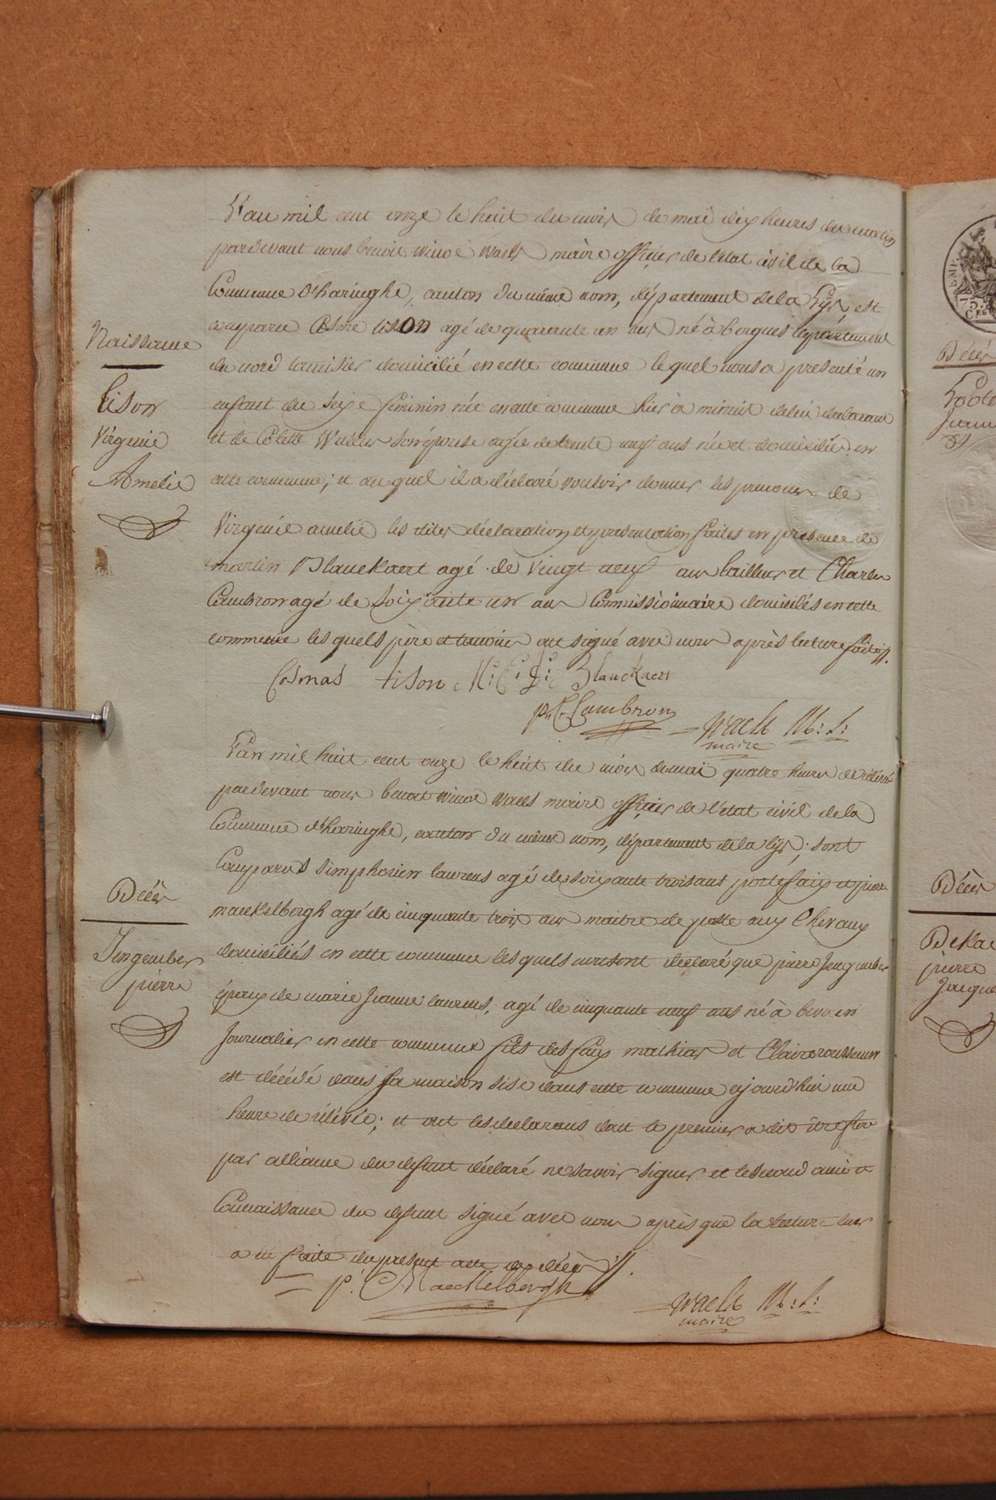 L'an mil cent onze le huit du mois de mai dix heures du matin
pardevant nous benoit winoc waels maire officier de l'etat civil de la
Commune d'haringhe, canton du même nom, département de la Lys, est
comparu Cosme tison agé de quarante un ans né à bergues département
du nord tamisier domicilié en cette commune lequel nous a presenté un
Naissance
enfant du sexe féminin née en cette commune hier à minuit de lui declarant
et de Colette son épouse agée de trente neuf ans née et domiciliée en
cette commune; et au quel il a déclaré vouloir donner les prenoms de
Virginie amelie les dites déclaration et presentation faites en presence de
martin Blanckaert agé de vingt neuf ans bailleur et Charles
Cambron agé de soixante un ans Commissionnaire domiciliés en cette
commune les quels père et temoins ont signé avec nous après lecture faite ./.
Tison
Virginie
Amelie
Cosmas tison Blanckaert
Cambron
waels M:F:
maire
L'an mil huit cent onze le huit du mois de mai quatre heures de rélévé
pardevant nous benoit winoc waels maire officier de l'etat civil de la
Commune d'haringhe, canton du même nom, département de la lys; sont
Comparus Simphorien laurens agé de soixante trois ans portefaix et pierre
maeckelbergh agé de cinquante trois ans maitre de poste aux Chevaux
domiciliés en cette commune les quels nous ont declaré que pierre Jengember
époux de marie Jeanne laurens, agé de cinquante neuf ans né à
Journalier en cette commune fils des feux mathias et Claire
est décédé dans sa maison sise dans cette commune ajourdhui une
heure de rélévée; et ont les declarans dont le premier a dit être
par alliance du defunt déclaré ne savoir signer et le second ami et
Connaissance du defunt signé avec nous après que la lecture leur
a été faite du present acte de décès ./.
Décès
Jengember
pierre
P. Maeckelbergh
waels M:F:
maire
Décès
Décès
pierre